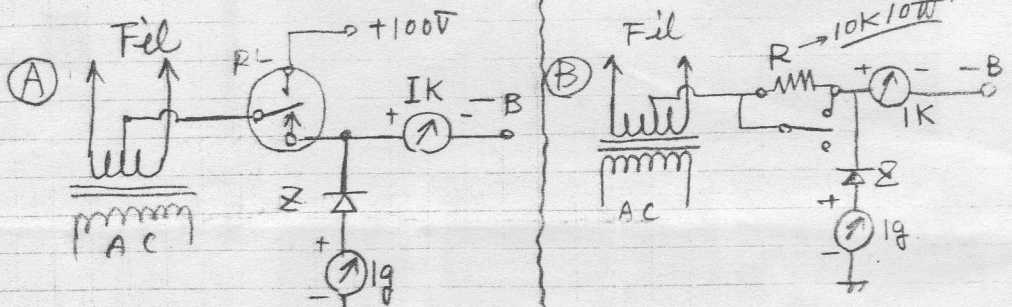 A
Fil
RL
+100V
IK
+ -
-B
Z
+
Ig
-
AC
B
Fil
R → 10K10W
+ -
-B
IK
Z
+
Ig
-
AC